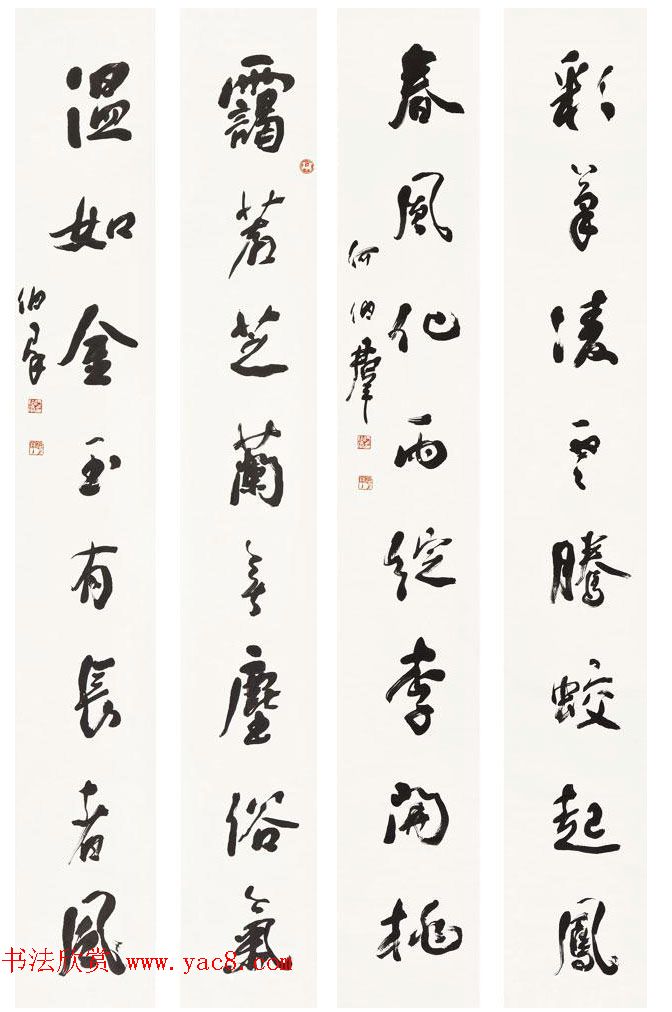 彩筆凌雲騰蛟起鳳
春風化雨綻李開桃
何伯群
靄若芝蘭無塵俗氣
溫如金玉有長者風
伯群
书法欣赏 www.yac8.com